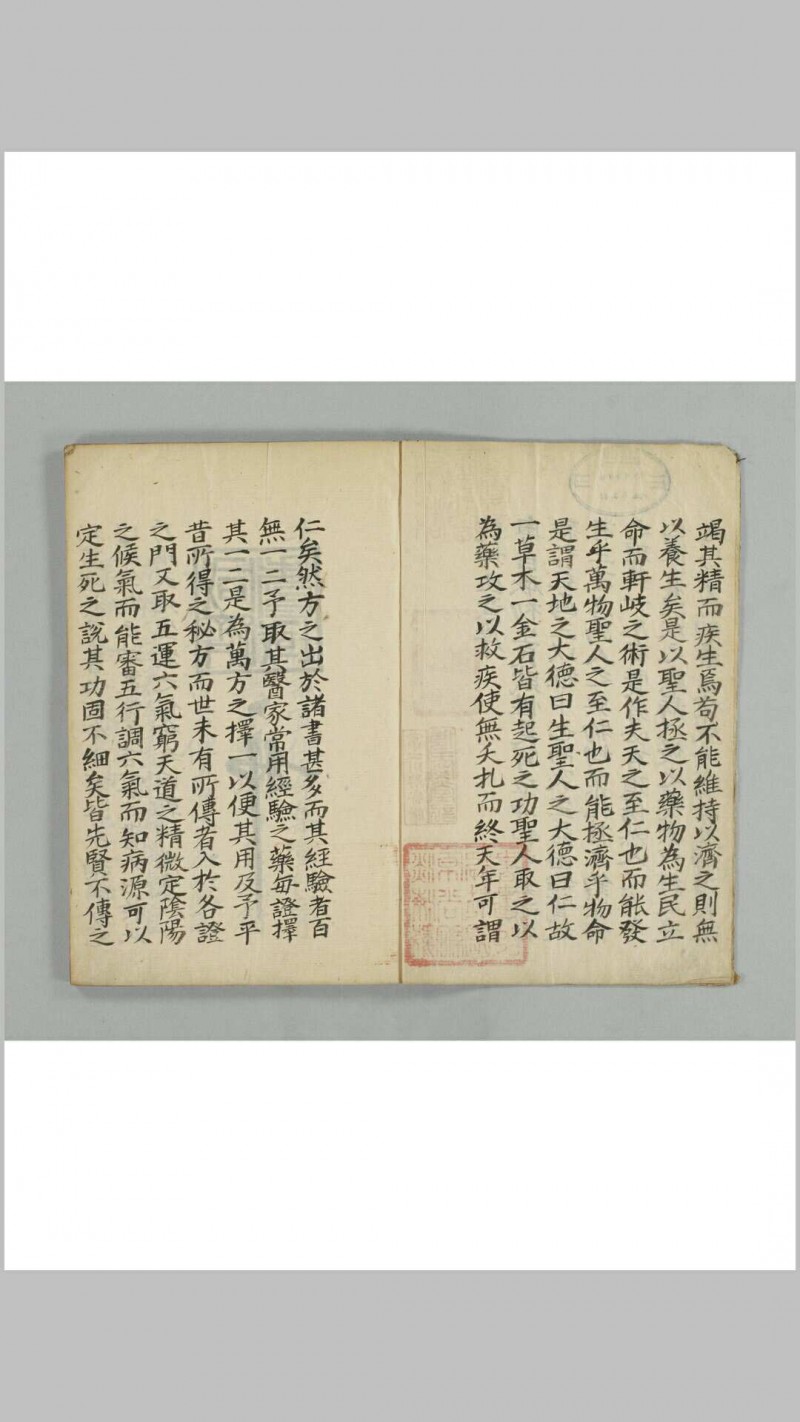 竭其精而疾生焉苟不能維持以濟之則無
以養生矣是以聖人拯之以藥物為生民立
命而軒岐之術是作夫天之至仁也而能發
生乎萬物聖人之至仁也而能拯濟乎物命
是謂天地之大德曰生聖人之大德曰仁故
一草木一金石皆有起死之功聖人取之以
為藥攻之以救疾使無夭扎而終天年可謂
仁矣然方之出於諸書甚多而其經驗者百
無一二予取其醫家常用經驗之藥每證擇
其一二是為萬方之擇一以便其用及予平
昔所得之秘方而世未有所傳者入於各證
之門又取五運六氣窮天道之精微定陰陽
之候氣而能審五行調六氣而知病源可以
定生死之說其功固不細矣皆先賢不傳之